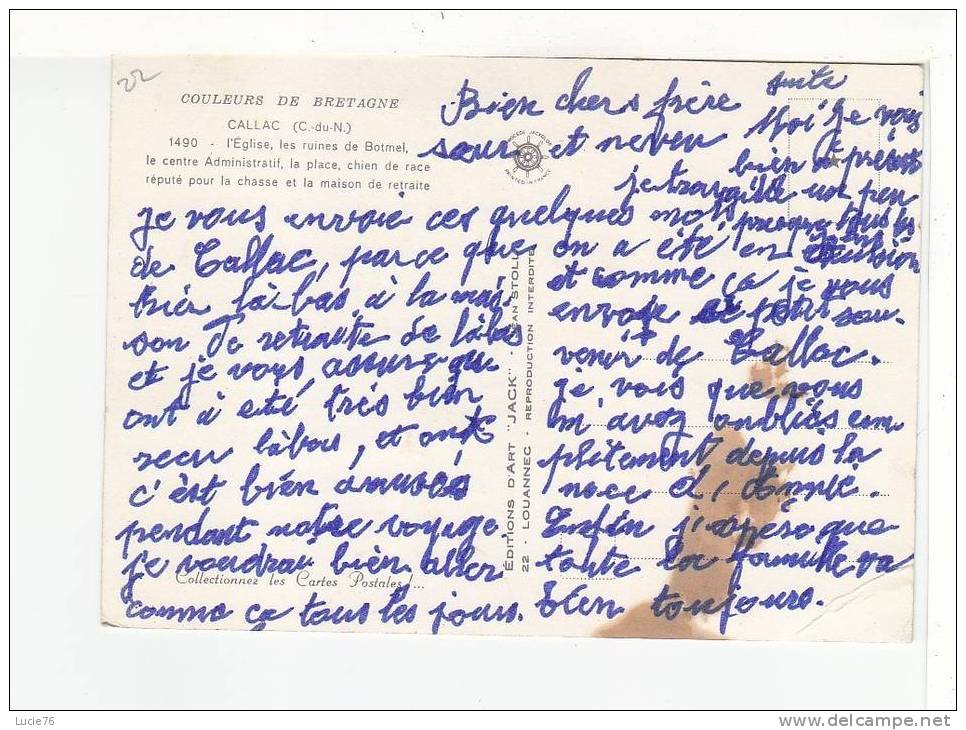 22
COULEURS DE BRETAGNE
CALLAC (C.-du-N.)
1490 - l'Église, les ruines de Botmel,
le centre Administratif, la place, chien de race
réputé pour la chasse et la maison de retraite
Bien chers frère
sœur et neveu
je vous envoie ces quelques mots
de Callac, parce que
hier là bas à la mai-
son de retraite de là bas
et je vous assure que
ont à été très bien
recu là bas, et on
c'èst bien amusés
pendant notre voyage.
je voudrai bien aller
comme ça tous les jours.
Collectionnez les Cartes Postales !...
ÉDITIONS D'ART "JACK" - JEAN STOLL
22 - LOUANNEC - REPRODUCTION INTERDITE
PROCEDE JACKCOLOR
PRINTED IN FRANCE
suite
Moi je vais
bien à présent
je travaille un peu
presque tous les
jours
on a été en excursion
et comme ça je vous
envoie pour sou-
venir de Callac.
je, vois que vous
m'avez oubliés com
plètement depuis la
noce d'Annie.
Enfin j'espèse que
toute la famille va
bien toujours.
Lucie76
www.delcampe.net